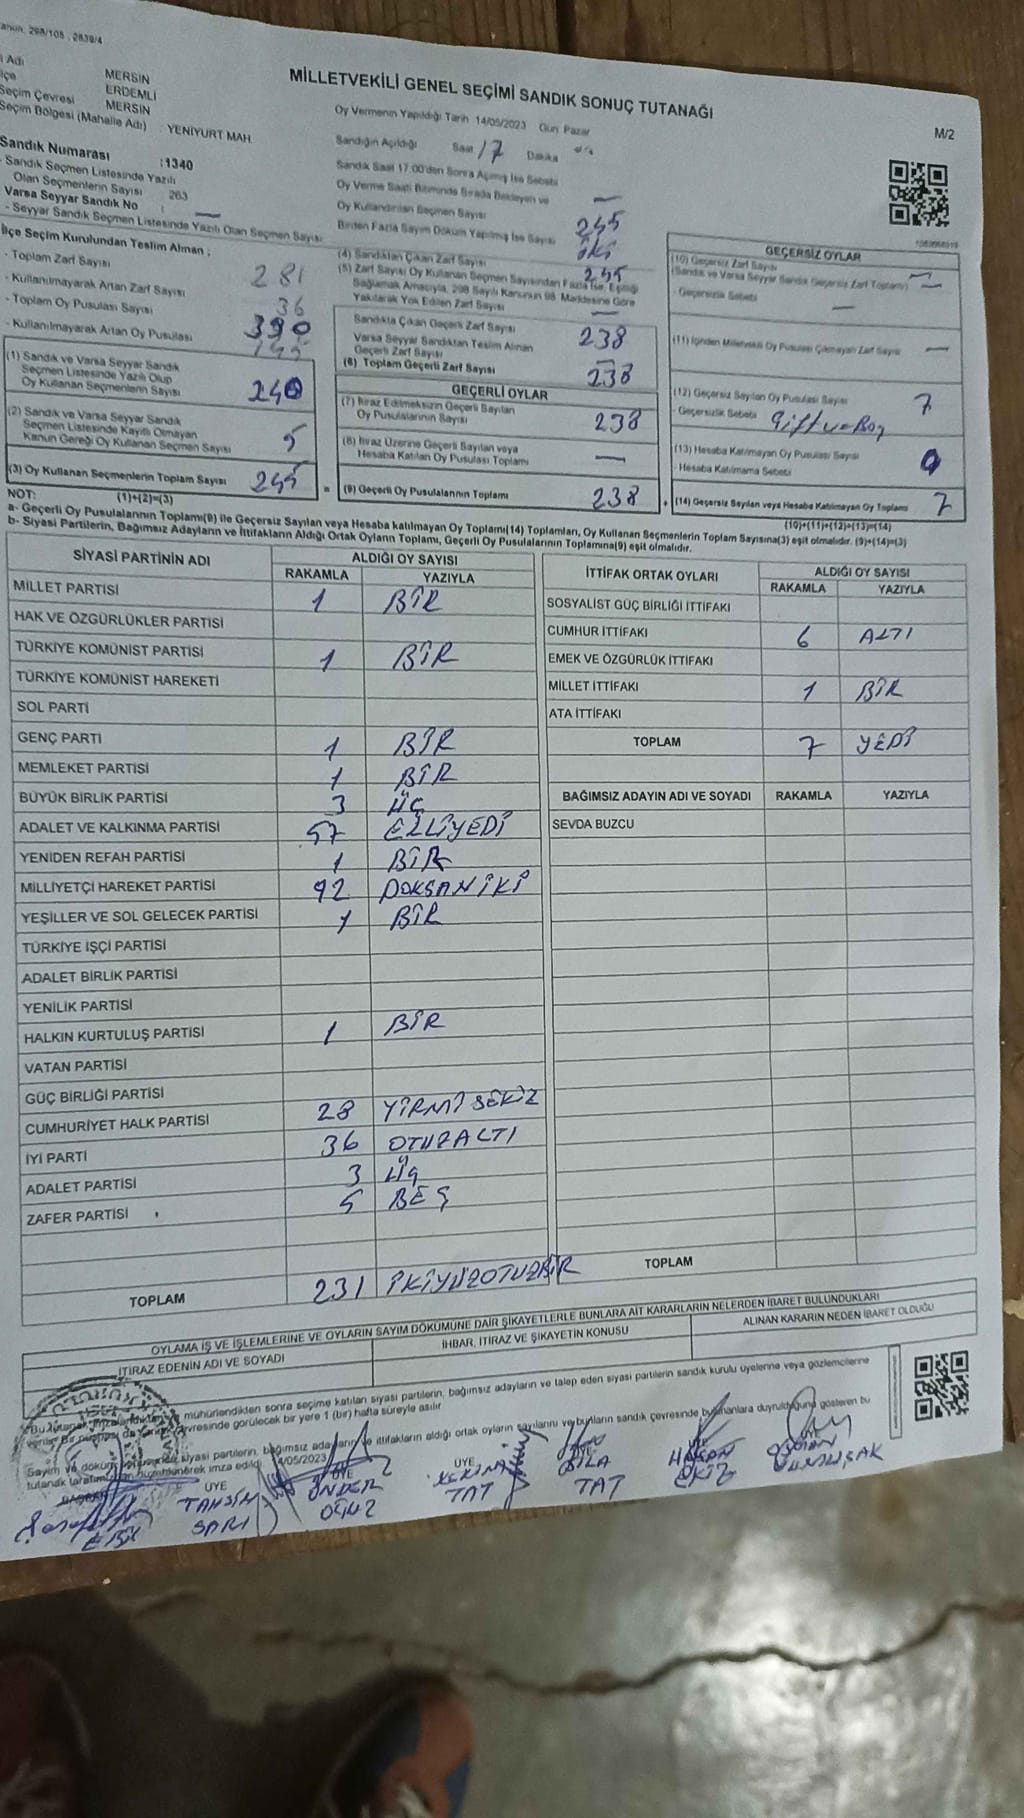 MİLLETVEKİLİ GENEL SEÇİMİ SANDIK SONUÇ TUTANAĞI
M/2
MERSİN
ERDEMLİ
Seçim Çevresi MERSİN
Seçim Bölgesi (Mahalle Adı) : YENİYURT MAH.
Sandık Numarası :1340
- Sandık Seçmen Listesinde Yazılı
Olan Seçmenlerin Sayısı : 263
Varsa Seyyar Sandık No : —
- Seyyar Sandık Seçmen Listesinde Yazılı Olan Seçmen Sayısı
Oy Vermenin Yapıldığı Tarih 14/05/2023 Gün Pazar
Sandığın Açıldığı Saat 17 Dakika
Sandık Saat 17.00'den Sonra Açılmış İse Sebebi
Oy Verme Saati Bitiminde Sırada Bekleyen ve —
Oy Kullandırılan Seçmen Sayısı 245
Birden Fazla Sayım Döküm Yapılmış İse Sayısı İKİ
İlçe Seçim Kurulundan Teslim Alınan :
- Toplam Zarf Sayısı 281
- Kullanılmayarak Artan Zarf Sayısı 36
- Toplam Oy Pusulası Sayısı 390
- Kullanılmayarak Artan Oy Pusulası 145
(1) Sandık ve Varsa Seyyar Sandık
Seçmen Listesinde Yazılı Olup
Oy Kullanan Seçmenlerin Sayısı 240
(2) Sandık ve Varsa Seyyar Sandık
Seçmen Listesinde Kayıtlı Olmayan
Kanun Gereği Oy Kullanan Seçmen Sayısı 5
(3) Oy Kullanan Seçmenlerin Toplam Sayısı 245
(4) Sandıktan Çıkan Zarf Sayısı 245
(5) Zarf Sayısı Oy Kullanan Seçmen Sayısından Fazla İse, Eşitliği
Sağlamak Amacıyla, 298 Sayılı Kanunun 98. Maddesine Göre
Yakılarak Yok Edilen Zarf Sayısı —
Sandıkta Çıkan Geçerli Zarf Sayısı 238
Varsa Seyyar Sandıktan Teslim Alınan
Geçerli Zarf Sayısı —
(6) Toplam Geçerli Zarf Sayısı 238
GEÇERLİ OYLAR
(7) İtiraz Edilmeksizin Geçerli Sayılan
Oy Pusulalarının Sayısı 238
(8) İtiraz Üzerine Geçerli Sayılan veya
Hesaba Katılan Oy Pusulası Toplamı —
= (9) Geçerli Oy Pusulalarının Toplamı 238
GEÇERSİZ OYLAR
(10) Geçersiz Zarf Sayısı
(Sandık ve Varsa Seyyar Sandık Geçersiz Zarf Toplamı) —
- Geçersizlik Sebebi —
(11) İçinden Milletvekili Oy Pusulası Çıkmayan Zarf Sayısı —
(12) Geçersiz Sayılan Oy Pusulası Sayısı 7
- Geçersizlik Sebebi
(13) Hesaba Katılmayan Oy Pusulası Sayısı 0
- Hesaba Katılmama Sebebi
+ (14) Geçersiz Sayılan veya Hesaba Katılmayan Oy Toplamı 7
NOT: (1)+(2)=(3)
(10)+(11)+(12)+(13)=(14)
a- Geçerli Oy Pusulalarının Toplamı(9) ile Geçersiz Sayılan veya Hesaba katılmayan Oy Toplamı(14) Toplamları, Oy Kullanan Seçmenlerin Toplam Sayısına(3) eşit olmalıdır. (9)+(14)=(3)
b- Siyasi Partilerin, Bağımsız Adayların ve İttifakların Aldığı Ortak Oyların Toplamı, Geçerli Oy Pusulalarının Toplamına(9) eşit olmalıdır.
SİYASİ PARTİNİN ADI ALDIĞI OY SAYISI
RAKAMLA YAZIYLA
MİLLET PARTİSİ 1 BİR
HAK VE ÖZGÜRLÜKLER PARTİSİ
TÜRKİYE KOMÜNİST PARTİSİ 1 BİR
TÜRKİYE KOMÜNİST HAREKETİ
SOL PARTİ
GENÇ PARTİ 1 BİR
MEMLEKET PARTİSİ 1 BİR
BÜYÜK BİRLİK PARTİSİ 3 ÜÇ
ADALET VE KALKINMA PARTİSİ 57 ELLİYEDİ
YENİDEN REFAH PARTİSİ 1 BİR
MİLLİYETÇİ HAREKET PARTİSİ 92 DOKSANİKİ
YEŞİLLER VE SOL GELECEK PARTİSİ 1 BİR
TÜRKİYE İŞÇİ PARTİSİ
ADALET BİRLİK PARTİSİ
YENİLİK PARTİSİ
HALKIN KURTULUŞ PARTİSİ 1 BİR
VATAN PARTİSİ
GÜÇ BİRLİĞİ PARTİSİ
CUMHURİYET HALK PARTİSİ 28 YİRMİ SEKİZ
İYİ PARTİ 36 OTUZALTI
ADALET PARTİSİ 3 ÜÇ
ZAFER PARTİSİ 5 BEŞ
TOPLAM 231 İKİYÜZOTUZBİR
İTTİFAK ORTAK OYLARI ALDIĞI OY SAYISI
RAKAMLA YAZIYLA
SOSYALİST GÜÇ BİRLİĞİ İTTİFAKI
CUMHUR İTTİFAKI 6 ALTI
EMEK VE ÖZGÜRLÜK İTTİFAKI
MİLLET İTTİFAKI 1 BİR
ATA İTTİFAKI
TOPLAM 7 YEDİ
BAĞIMSIZ ADAYIN ADI VE SOYADI RAKAMLA YAZIYLA
SEVDA BUZCU
TOPLAM
OYLAMA İŞ VE İŞLEMLERİNE VE OYLARIN SAYIM DÖKÜMÜNE DAİR ŞİKAYETLERLE BUNLARA AİT KARARLARIN NELERDEN İBARET BULUNDUKLARI
İTİRAZ EDENİN ADI VE SOYADI İHBAR, İTİRAZ VE ŞİKAYETİN KONUSU ALINAN KARARIN NEDEN İBARET OLDUĞU
mühürlendikten sonra seçime katılan siyasi partilerin, bağımsız adayların ve talep eden siyasi partilerin sandık kurulu üyelerine veya gözlemcilerine
çevresinde görülecek bir yere 1 (bir) hafta süreyle asılır.
Sayım ve döküm siyasi partilerin, bağımsız adayların ve ittifakların aldığı ortak oyların sayılarını ve bunların sandık çevresinde bulunanlara duyrulduğunu gösteren bu
tutanak tarafımızdan imza edildi. 14/05/2023
ÜYE ÜYE ÜYE
TAHSİN SARI
ÖNDER
TAT
TAT
HASAN